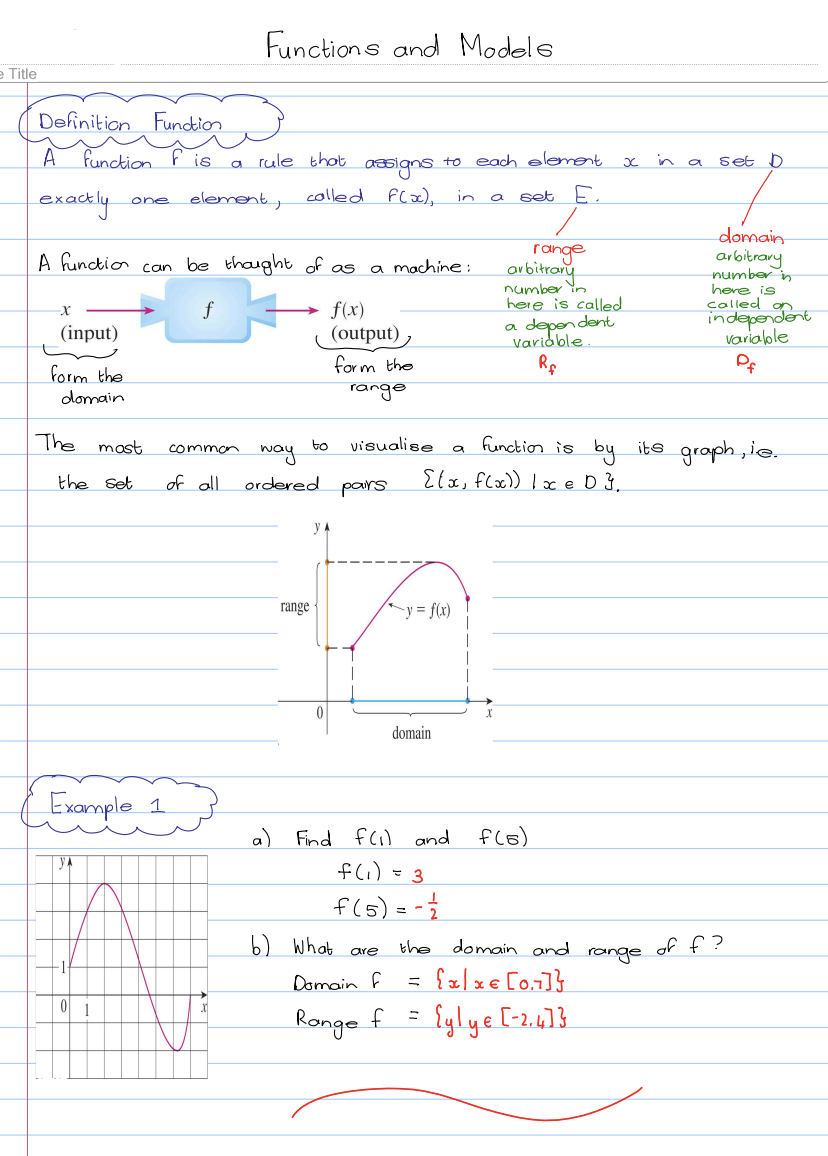 Functions and Models
e Title
Definition Function
A function f is a rule that assigns to each element x in a set D
exactly one element, called f(x), in a set E.
range
arbitrary
number in
here is called
a dependent
variable.
R_f
domain
arbitrary
number in
here is
called an
independent
variable
D_f
A function can be thought of as a machine:
x
(input)
f
f(x)
(output)
form the
domain
form the
range
The most common way to visualise a function is by its graph, i.e.
the set of all ordered pairs {(x, f(x)) | x ∈ D}.
y
range
y = f(x)
0
x
domain
Example 1
y
1
0
1
x
a) Find f(1) and f(5)
f(1) = 3
f(5) = -1/2
b) What are the domain and range of f?
Domain f = {x| x ∈ [0,7]}
Range f = {y| y ∈ [-2,4]}